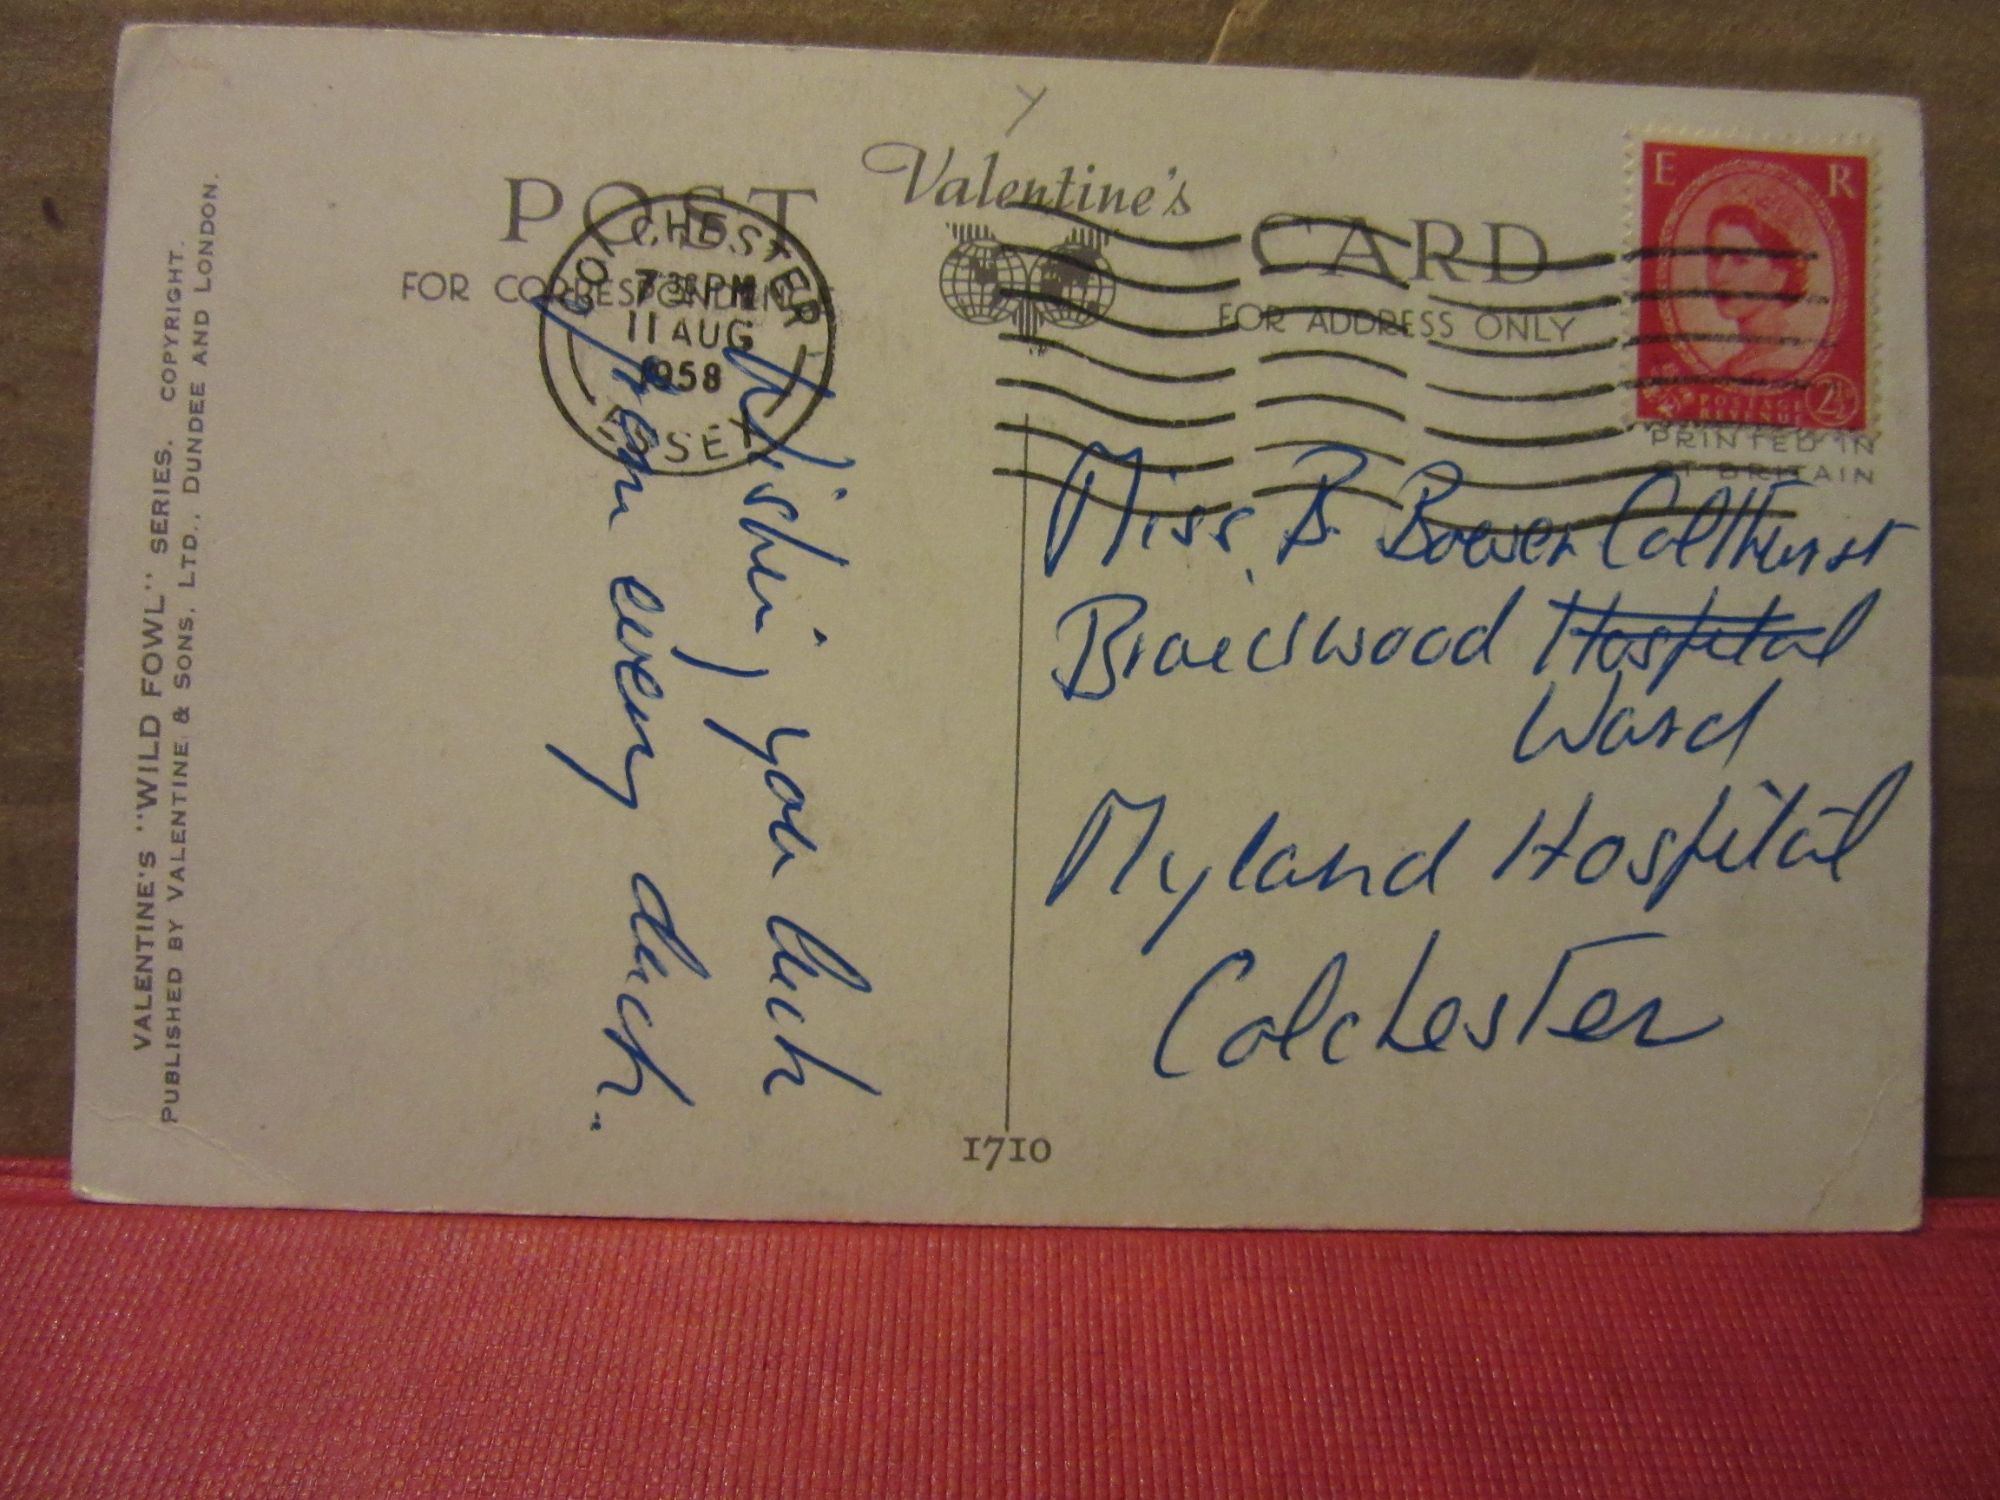 POST Valentine's CARD
FOR CORRESPONDENCE
FOR ADDRESS ONLY
COLCHESTER
7 30 PM
11 AUG
1958
ESSEX
E R
POSTAGE
REVENUE
2½
PRINTED IN
GT BRITAIN
VALENTINE'S "WILD FOWL" SERIES. COPYRIGHT.
PUBLISHED BY VALENTINE & SONS, LTD., DUNDEE AND LONDON.
Wishing you luck
from every duck.
Miss. B. Bowen Colthurst
Braeswood Hospital
Ward
Myland Hospital
Colchester
1710